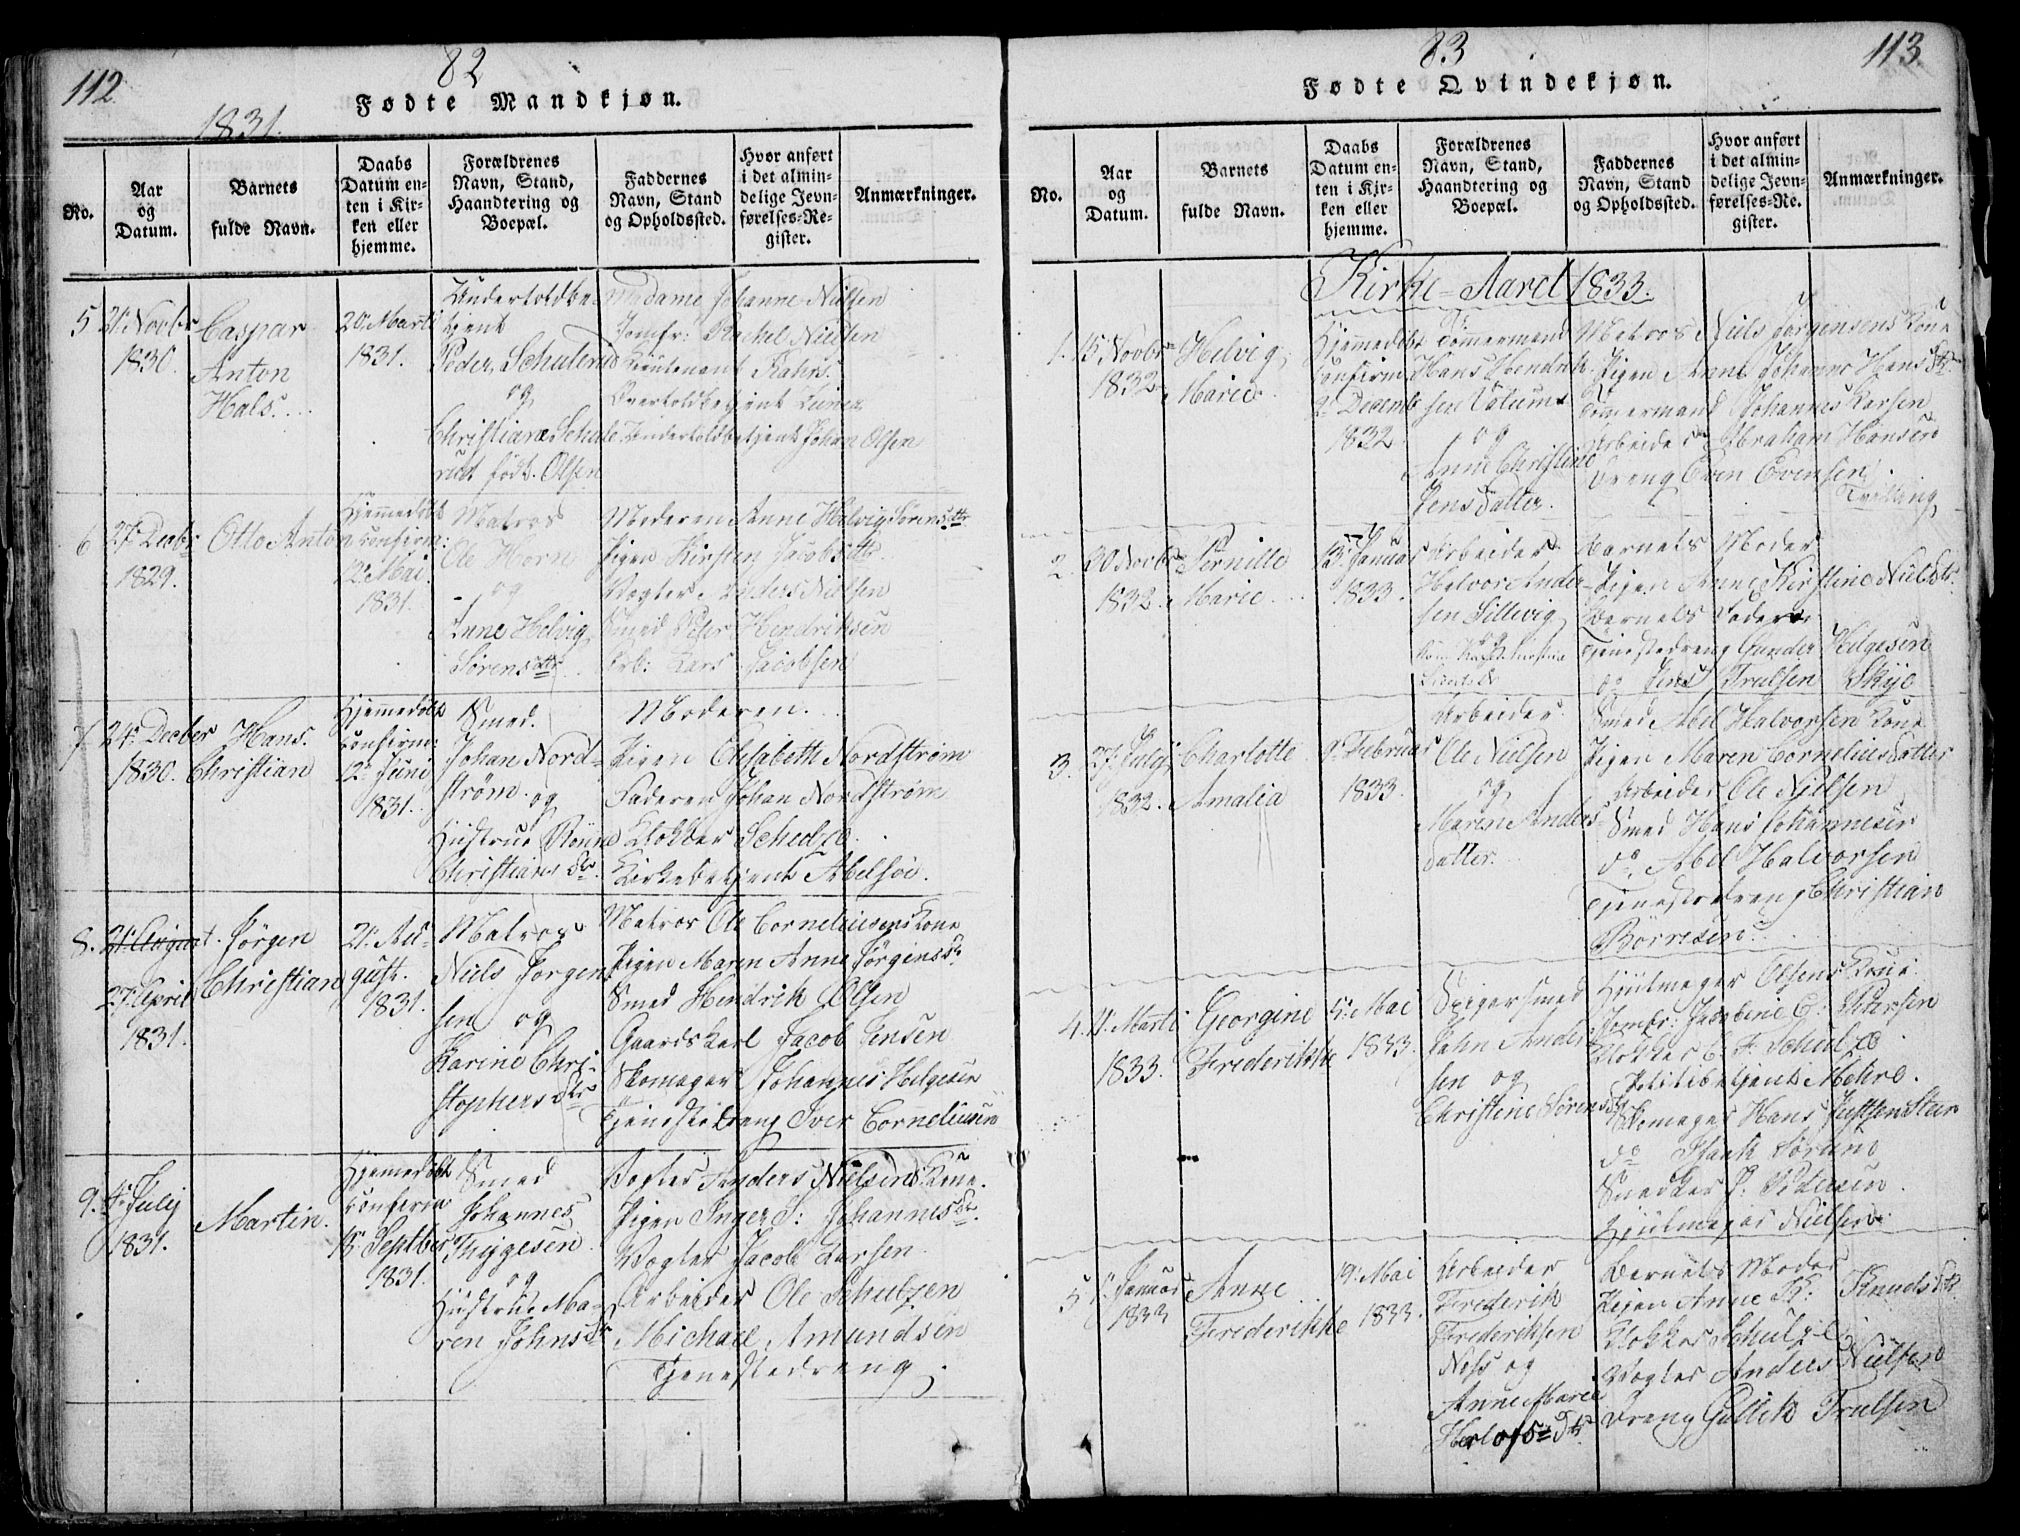 112
82
Fødte Mandkjøn.
1831.
No.
Aar og Datum.
Barnets fulde Navn.
Daabs Datum enten i Kirken eller hjemme.
Forældrenes Navn, Stand, Haandtering og Boepæl.
Faddernes Navn, Stand og Opholdssted.
Hvor anført i det almindelige Jevnførelses-Register.
Anmærkninger.
5
21 Novbr
1830.
Caspar
Anton
Hals.
20 Marti
1831.
Undertoldbe-
tjent
Peder Schulerud
og
Christiane Schule
rud født Olsen
Madame Johanne Nielsen
Jomfr: Rachel Nielsen
Lieutenant Rahrs.
Overtoldbetjent
Undertoldbetjent Johan Olsen
6
27 Decbr
1829.
Otto Anton
Hjemmedøbt
Confirm:
12 Mai
1831.
Matros
Ole Horn
og
Anne Helvig
Sørensdtr
Moderen Anne Helvig Sørensdtr
Pigen Kirsten Jacobsdtr
Vogter Anders Nielsen
Smed Peter Hendriksen
Arb: Lars Jacobsen
7
24 Decber
1830.
Hans
Christian
Hjemmedøbt
Confirm:
12 Juni
1831.
Smed
Johan Nord-
strøm og
Hustrue
Christiansdtr.
Moderen.
Pigen Elisabeth Nordstrøm
Faderen Johan Nordstrøm
Klokker Schulze
Kirkebetjent Abelsøe.
8.
21 August
27 April
1831.
Jørgen
Christian
21 Au-
gust.
1831.
Matros
Niels Jørgen
sen og
Karine Chri-
stophersdtr
Matros Ole Corneliusens Kone
Pigen Maren Anne Jørgensdtr
Smed Hendrik Olsen
Gaardskarl Jacob Jensen
Skomager Johannes Helgesen
Tjenestedreng Iver Corneliusen
9.
July
1831.
Martin.
Hjemmedøbt
Confirm
18 Septber
1831.
Smed
Johannes
Thygesen
og
Hustrue Ma-
ren Johnsdtr
Vogter Anders Nielsens Kone.
Pigen Inger S: Johannesdtr.
Vogter Jacob Larsen
Arbeider Ole Schulzen
Michael Amundsen
Tjenestedreng.
83
113.
Fødte Qvindekjøn.
No.
Aar og Datum.
Barnets fulde Navn.
Daabs Datum enten i Kirken eller hjemme.
Forældrenes Navn, Stand, Haandtering og Boepæl.
Faddernes Navn, Stand og Opholdssted.
Hvor anført i det almindelige Jevnførelses-Register.
Anmærkninger.
Kirke-Aaret 1833.
1.
15 Novbr
1832
Helvig
Marie
Hjemmedøbt
Confirm
2 Decemb
1832
Tømmermand
Hans Hendrik-
sen
og
Anne Christine
Jensdatter.
Matros Niels Jørgensens Kone
Pigen Anne Johanne Hansdtr.
Tømmermand Johannes Larsen
Arbeider Abraham Hansen
Dreng Even Evensen
Tvilling
2.
20 Novbr
1832.
Pernille
Marie
13 Januar
1833.
Arbeider
Halvor Ander-
sen Sillevig
og
Barnets Moder
Pigen Anne Kirstine Nielsdtr.
Barnets Fader
Tjenestedreng Gunder Helgesen
og Jens Trulsen Skye
3.
27 July
1832.
Charlotte
Amalia
9 Februar
1833.
Arbeider
Ole Nielsen
og
Maren Anders
datter.
Smed Abel Halvorsens Kone
Pigen Maren Corneliusdatter
Arbeider Ole Nielsen
Smed Hans Johannesen
do Abel Halvorsen
Tjenestedreng Christian
Børresen
4.
11 Marti
1833.
Georgine
Frederikke
5 Mai
1833.
Spigersmed
John Ander
sen og
Christine Sørensdtr
Hjulmager Olsens Kone
Jomfr: Jacobine C: Petersen
Klokker C. F. Schulze
Politibetjent Mehre.
Skomager Hans Justsen Steen
do
Snedker P: Petersen.
Hjulmager Nielsen.
5
1 Januar
1833
Anne
Frederikke
19 Mai
1833.
Arbeider
Frederik
Frederiksen
Ness og
Anne Marie
Herlofsdtr
Barnets Moder
Pigen Anne K: Knudsdtr
Klokker Schulze
Vogter Anders Nielsen
Dreng Gullik Trulsen